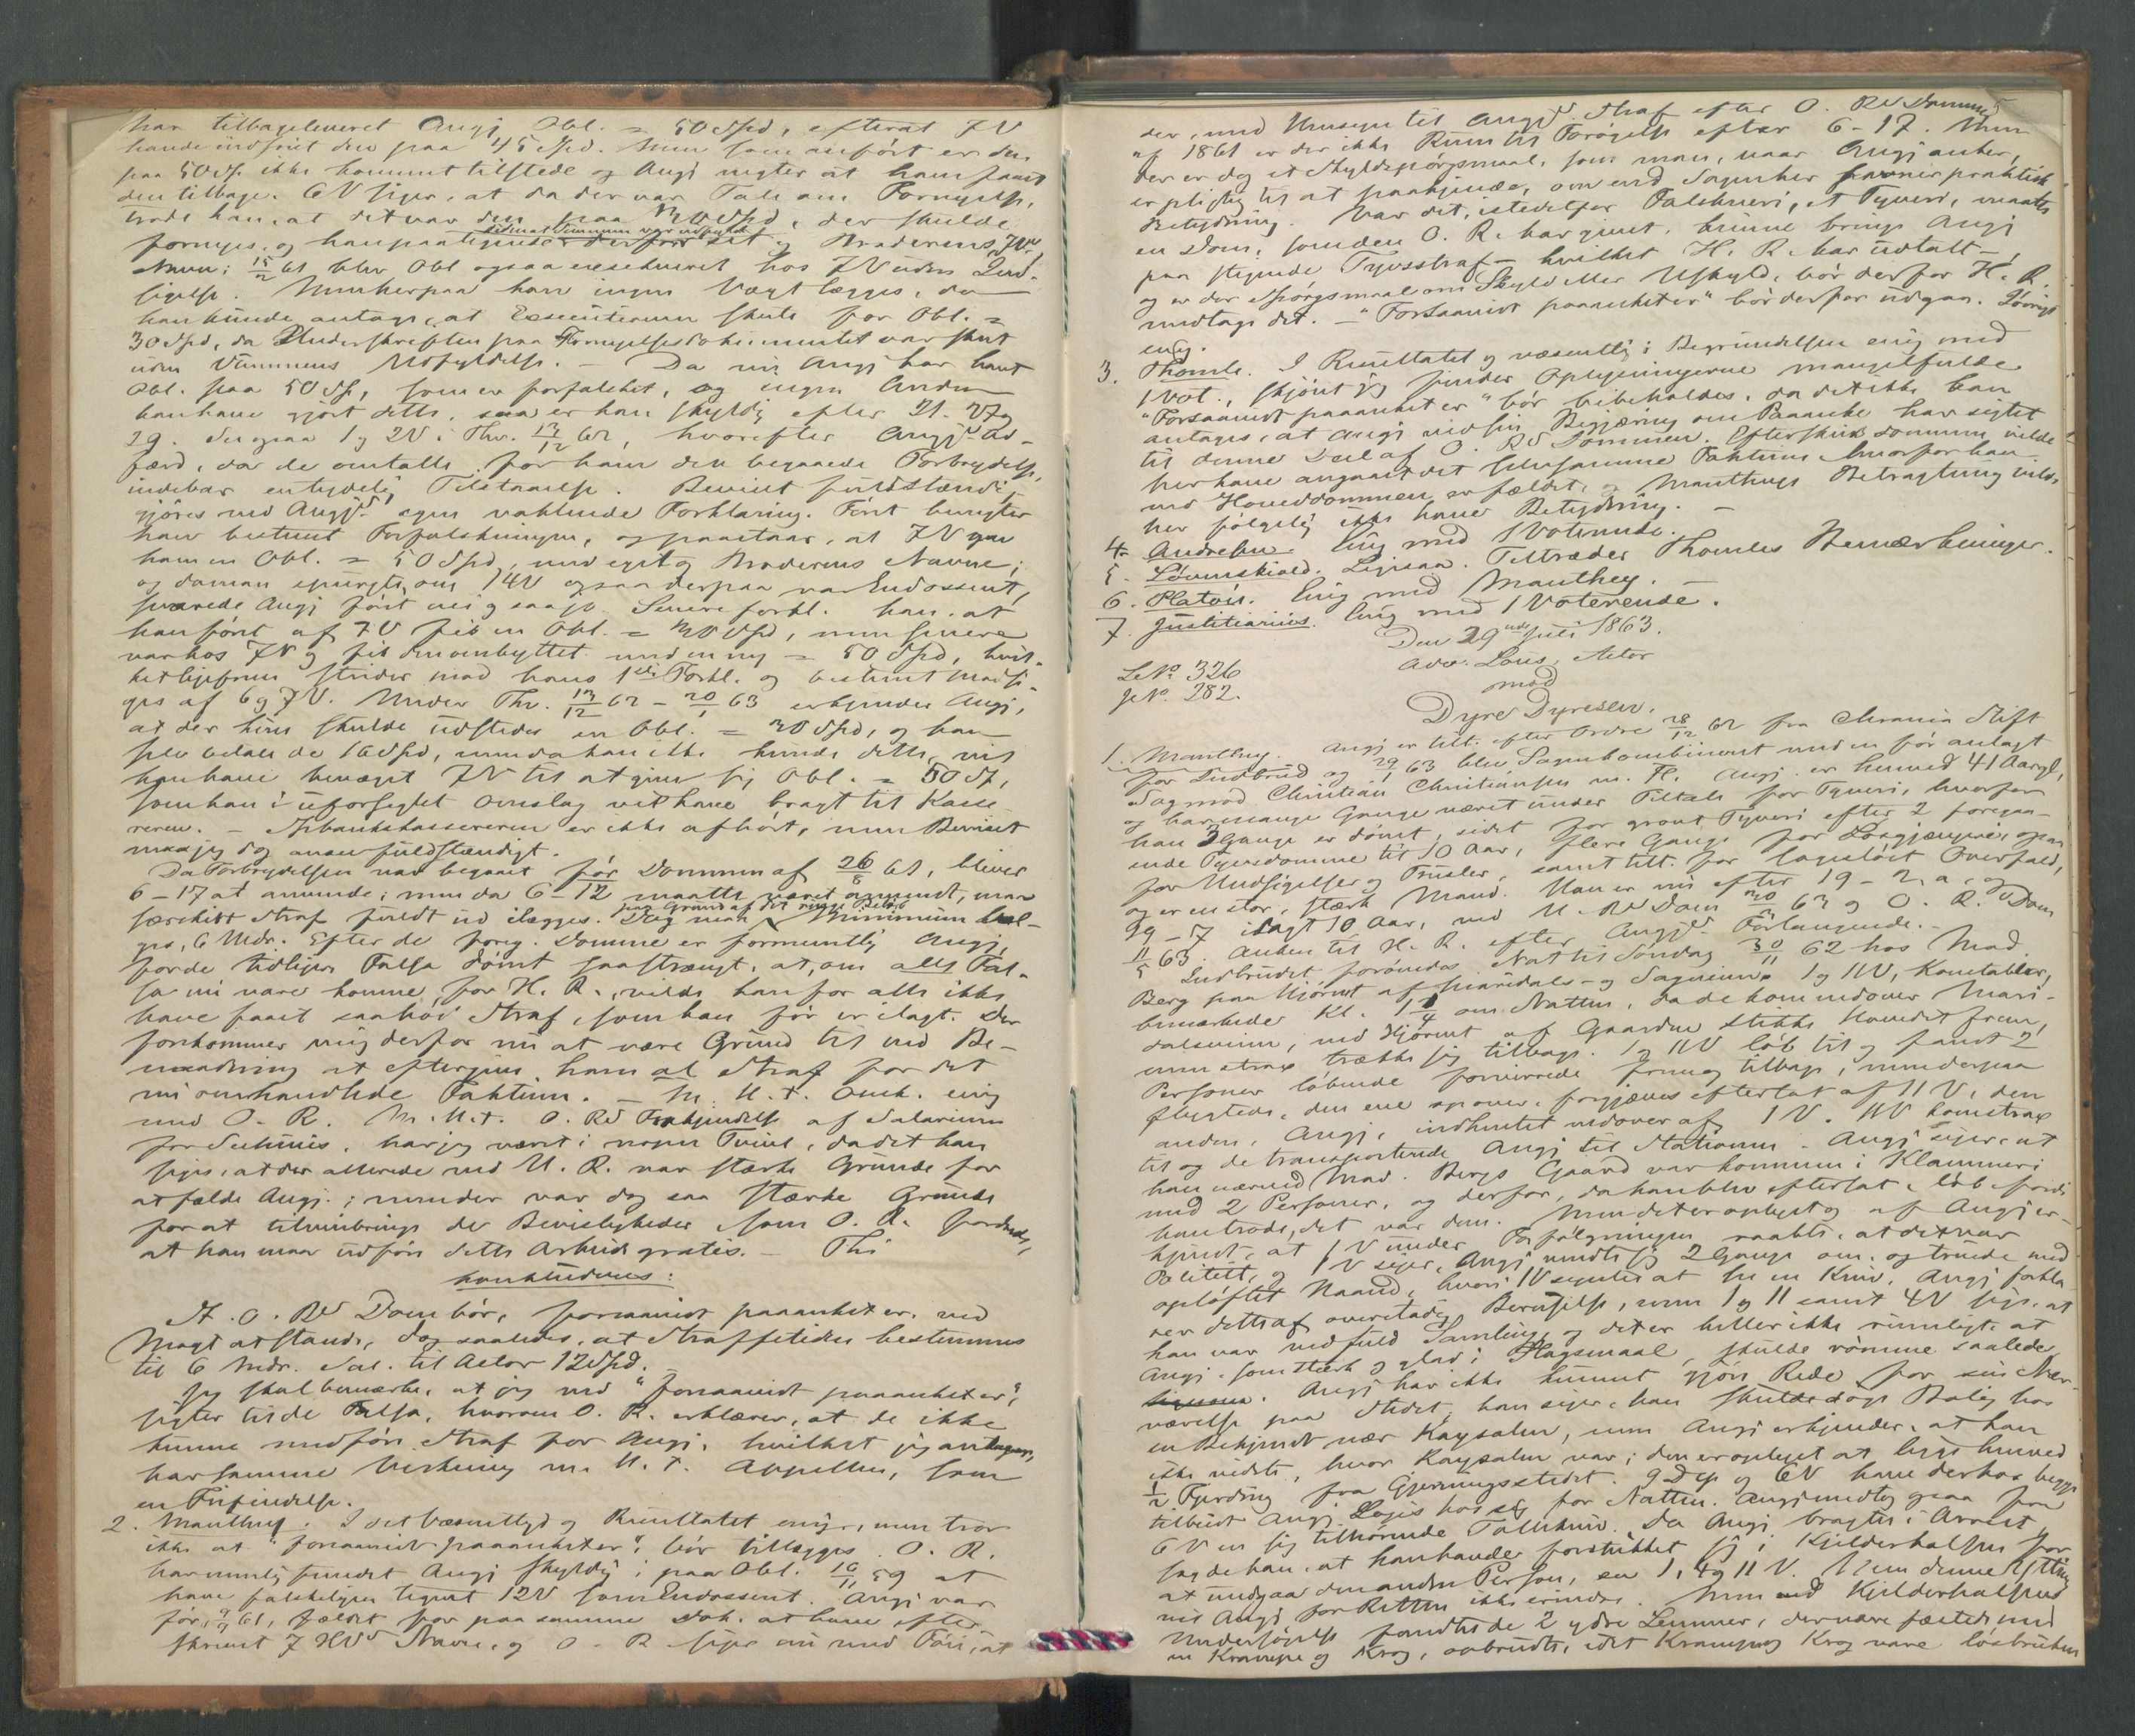 har tilbageleveret Angj Obl. = 50 Spd, efterat 7V
havde indfriet den paa 45 Spd. Men som anført er den
paa 50 Sp. ikke kommet tilstede og Angj negter at have faaet
den tilbage. 6V siger, at da der var Tale om Fornyelse,
trode han, at det var den paa 30 Spd, der skulde
fornyes, og han paategnede derfor sit og Broderens, 7Vs
Navn; 15/2 61 blev Obl ogsaa exsekveret hos 7V uden Ind-
sigelse. Men herpaa kan ingen Vægt lægges, da
han kunde antage, at Executionen skete for Obl. =
30 Spd, da Underskriften paa Fornyelsesdokumentet var skeet
uden Summens Udfyldelse. — Da nu Angj har havt
Obl. paa 50 Sp, som er forfalsket, og ingen Anden
kan have gjort dette, saa er han skyldig efter
29. Se ogsaa 1 og 2V i Thv. 13/12 62, hvorefter Angjs Ad-
færd, da de omtalte for ham den begaaede Forbrydelse,
indebar en tydelig Tilstaaelse. Beviset fuldstændig-
gjøres ved Angjs egen vaklende Forklaring. Først benegter
han bestemt Forfalskningen, og paastaar, at 7V gav
ham en Obl. = 50 Spd, med eget og Broderens Navne;
og da man spurgte, om 14V ogsaa derpaa var Endossent,
svarede Angj først nei og saa jo. Senere forkl. han, at
han først af 7V fik en Obl. = 30 Spd, men senere
var hos 7V og fik den ombyttet med en ny = 50 Spd, hvil-
ket ligefrem strider mod hans 1ste Forkl. og bestemt modsi-
ges af 6 og 7V. Under Thv. 13/12 62 – 20/1 63 erkjender Angj,
at der kun skulde udstedes en Obl. = 30 Spd, og han
selv betale de 16 Spd, men da han ikke kunde dette, vil
han have bevæget 7V til at give sig Obl. = 50 Sp,
som han i uforseglet Omslag vil have bragt til Kasse-
reren. — Bankkassereren er ikke afhørt, men Beviset
maa jeg dog ansee fuldstændigt.
Da Forbrydelsen var begaaet før Dommen af 26/8 61, bliver
6–17 at anvende; men da 6–12 maatte været anvendt, maa
særskilt Straf fuldt ud ilægges. Dog maa Minimum væl-
ges, 6 Mdr. Efter de forrig. Domme er formentlig Angj,
for de tidligere Falsa dømt saa strængt, at, om alle Fal-
sa nu vare komne for H. R., vilde han for alle ikke
have faaet saa høi Straf, som han før er ilagt. Der
forekommer mig derfor nu at være Grund til ved Be-
naadning at eftergive ham al Straf for det
nu omhandlede Faktum. — M. H. t. Omk. enig
med O. R. M. H. t. O. Rs Frakjendelse af Salarium
for har jeg været i nogen Tvivl, da det kan
siges, at der allerede ved U. R. var stærke Grunde for
at fælde Angj.; men der var dog saa stærke Grunde
for at tilveiebringe de Bevisligheder som O. R. fordrede,
at han maa udføre dette Arbeide gratis. — Thi
konkluderes:
A. O. Rs Dom bør, forsaavidt paaanket er, ved
Magt at stande, dog saaledes, at Straffetiden bestemmes
til 6 Mdr. Sal. til Actor 12 Spd.
Jeg skal bemærke, at jeg ved "forsaavidt paaanket er",
sigter til de Falsa, hvorom O. R. erklærer, at de ikke
kunne medføre Straf for Angj, hvilket jeg antager,
har samme Virkning m. H. t. Appellen, som
en Frifindelse.
2. Manthey. I det Væsentlige og Resultatet enig, men tror
ikke at "forsaavidt paaanket er", bør tillægges. O. R.
har nemlig fundet Angj skyldig i paa Obl. 16/11 59 at
have falskeligen tegnet 12V som Endossent. Angj var
før, 61, fældet for paa samme Dok. at have efter-
skrevet 7 Navne, og O. R. siger nu med Føie, at
der, med Hensyn til Angjs Straf efter O. Rs Dommen
af 1861 er der ikke Rum til Forøgelse efter 6–17. Men
der er dog et Skyldspørgsmaal, som man, naar Angj anker,
er pligtig til at paakjende, om end Sagen her savner praktisk
Betydning. Var det, istedetfor Falskneri, et Tyveri, maatte
en Dom, som den O. R. har givet, kunne bringe Angj
paa stigende Tyvsstraf – hvilket H. R. har udtalt –
og er der Spørgsmaal om Skyld eller Uskyld, bør derfor H. R.
medtage det. — "Forsaavidt paaanket er" bør derfor udgaa. Forøvrigt
enig.
3. Thomle. I Resultatet og væsentlig i Begrundelsen enig med
1 Vot., skjønt jeg finder Oplysningerne mangelfulde.
"Forsaavidt paaanket er" bør bibeholdes, da det ikke kan
antages, at Angj ved sin Begjæring om Paaanke har sigtet
til denne Deel af O. Rs Dommen. Efterskuds dommen vilde
her have angaaet det selvsamme Faktum hvorfor han
ved Hoveddommen er fældet, og Mantheys Betragtning vilde
her følgelig ikke have Betydning. —
4. Andresen. Enig med 1 Voterende.
5. Løvenskiold. Ligesaa. Tiltræder Thomles Bemærkninger.
6. Platou. Enig med Manthey. —
7. Justitiarius. Enig med 1 Voterende.
Den 29nde Juli 1863.
Adv. Lous, Actor
LNo 326
JNo 282.
mod
Dyre Dyresen.
1. Manthey. Angj er tilt. efter Ordre 28/12 62 fra Chrania Stift
for Indbrud og 29/1 63 blev Sagen kombineret med en før anlagt
Sag mod Christian Christiansen m. Fl. Angj. er henved 41 Aargl,
og har mange Gange været under Tiltale for Tyveri, hvorfor
han 3 Gange er dømt, sidst for grovt Tyveri efter 2 foregaa-
ende Tyvsdomme til 10 Aar, flere Gange for Løsgjængeri, ogsaa
for Undsigelser og Trusler, samt tilt. for lageløst Overfald,
og er en stor, stærk Mand. Han er nu efter 19 – 2, a, og
99 – 7 ilagt 10 Aar, ved U. Rs Dom 63 og O. R.s Dom
11/5 63. Anken til H. R. efter Angjs Forlangende. –
Indbrudet forøvedes Nat til Søndag 30/11 62 hos Mad
Berg paa Hjørnet af Maridals- og Sagveien. 1 og 11V, Konstabler,
bemærkede Kl. 1 1/4 om Natten, da de kom nedover Mari-
dalsveien, ved Hjørnet af Gaarden stikke Hovedet frem,
men strax trække sig tilbage. 1 og 11V løb til og fandt 2
Personer løbende forvirrede frem og tilbage, men derpaa
flygtede, den ene opover, forgjæves eftersat af 11 V, den
anden, Angj, indhentet nedover af 1 V. 11V kom strax
til og de transporterede Angj til Stationen. Angj siger, at
han nærved Mad. Bergs Gaard var kommen i Klammeri
med 2 Personer, og derfor, da han blev eftersat, løb, fordi
han trode, det var dem. Men det er oplyst og af Angj er-
kjendt, at 1 V under Forfølgningen raabte, at det var
Politiet, og 1 V siger, Angj vendte sig 2 Gange om, og truede med
opløftet Haand, hvori 1V syntes at see en Kniv. Angj fokla-
rer dette af overstadig Beruselse, men 1 og 11 samt 4V sige, at
han var ved fuld Samling, og det er heller ikke rimeligt, at
Angj, som stærk og glad i Slagsmaal, skulde rømme saaledes.
Angj har ikke kunnet gjøre Rede for sin Nær-
værelse paa Stedet; han siger, han skulde søge Bolig hos
en Bekjendt nær Kaysalen, men Angj erkjender, at han
ikke vidste, hvor Kaysalen var; den er oplyst at ligge henved
1/2 Fjerding fra Gjerningsstedet. 9 Dep og 6V have derhos begge
tilbudt Angj Logis hos sig for Natten. Angj medtog ogsaa fra
6 V en sig tilhørende Tollekniv. Da Angj bragtes i Arrest,
sagde han, at han havde forstukket sig i Kjelderhalsen for
at undgaa den anden Person, see 1, 4 og 11 V. Men denne Yttring
vil Angj for Retten ikke erindre. Men ved Kjelderhalsens
Undersøgelse fandtes de 2 ydre Lemmer, der vare fæstede med
en Krampe og Krog, opbrudte, idet Krampe og Krog vare løsbrukne